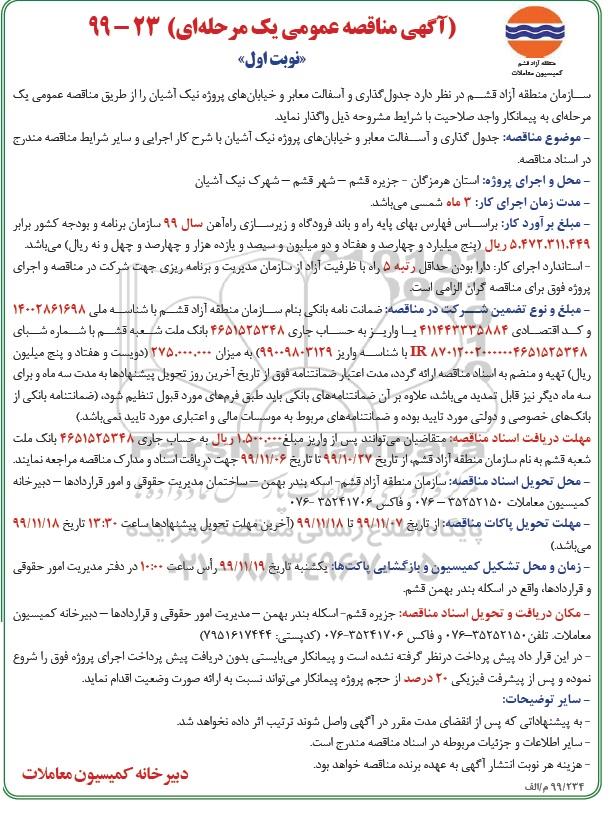 (آگهی مناقصه عمومی یک مرحله‌ای) ۲۳ - ۹۹
«نوبت اول»
منطقه آزاد قشم
کمیسیون معاملات
سازمان منطقه آزاد قشم در نظر دارد جدول‌گذاری و آسفالت معابر و خیابان‌های پروژه نیک آشیان را از طریق مناقصه عمومی یک
مرحله‌ای به پیمانکار واجد صلاحیت با شرایط مشروحه ذیل واگذار نماید.
- موضوع مناقصه: جدول گذاری و آسفالت معابر و خیابان‌های پروژه نیک آشیان با شرح کار اجرایی و سایر شرایط مناقصه مندرج
در اسناد مناقصه.
- محل و اجرای پروژه: استان هرمزگان - جزیره قشم – شهر قشم – شهرک نیک آشیان
- مدت زمان اجرای کار: ۳ ماه شمسی می‌باشد.
- مبلغ برآورد کار: براساس فهارس بهای پایه راه و باند فرودگاه و زیرسازی راه‌آهن سال ۹۹ سازمان برنامه و بودجه کشور برابر
۵.۴۷۲.۳۱۱.۴۴۹ ریال (پنج میلیارد و چهارصد و هفتاد و دو میلیون و سیصد و یازده هزار و چهارصد و چهل و نه ریال) می‌باشد.
- استاندارد اجرای کار: دارا بودن حداقل رتبه ۵ راه با ظرفیت آزاد از سازمان مدیریت و برنامه ریزی جهت شرکت در مناقصه و اجرای
پروژه فوق برای مناقصه گران الزامی است.
- مبلغ و نوع تضمین شرکت در مناقصه: ضمانت نامه بانکی بنام سازمان منطقه آزاد قشم با شناسه ملی ۱۴۰۰۲۸۶۱۶۹۸
و کد اقتصادی ۴۱۱۴۴۳۳۳۵۸۸۴ یا واریز به حساب جاری ۴۶۵۱۵۲۵۳۴۸ بانک ملت شعبه قشم با شماره شبای
IR ۸۷۰۱۲۰۰۲۰۰۰۰۰۰۴۶۵۱۵۲۵۳۴۸ با شناسه واریز ۹۹۰۰۹۸۰۳۱۲۹) به میزان ۲۷۵.۰۰۰.۰۰۰ (دویست و هفتاد و پنج میلیون
ریال) تهیه و منضم به اسناد مناقصه ارائه گردد، مدت اعتبار ضمانتنامه فوق از تاریخ آخرین روز تحویل پیشنهادها به مدت سه ماه و برای
سه ماه دیگر نیز قابل تمدید می‌باشد، علاوه بر آن ضمانتنامه‌های بانکی باید طبق فرم‌های مورد قبول تنظیم شود، (ضمانتنامه بانکی از
بانک‌های خصوصی و دولتی مورد تایید بوده و ضمانتنامه‌های مربوط به موسسات مالی و اعتباری مورد تایید نمی‌باشد.)
مهلت دریافت اسناد مناقصه: متقاضیان می‌توانند پس از واریز مبلغ ۱.۵۰۰.۰۰۰ ریال به حساب جاری ۴۶۵۱۵۲۵۳۴۸ بانک ملت
شعبه قشم به نام سازمان منطقه آزاد قشم، از تاریخ ۹۹/۱۰/۲۷ تا تاریخ ۹۹/۱۱/۰۶ جهت دریافت اسناد و مدارک مناقصه مراجعه نمایند.
- محل تحویل اسناد مناقصه: سازمان منطقه آزاد قشم- اسکه بندر بهمن – ساختمان مدیریت حقوقی و امور قراردادها – دبیرخانه
کمیسیون معاملات ۳۵۲۵۲۱۵۰ – ۰۷۶ و فاکس ۳۵۲۴۱۷۰۶ -۰۷۶
- مهلت تحویل پاکات مناقصه: از تاریخ ۹۹/۱۱/۰۷ تا ۹۹/۱۱/۱۸ (آخرین مهلت تحویل پیشنهادها ساعت ۱۳:۳۰ تاریخ ۹۹/۱۱/۱۸
می‌باشد.)
- زمان و محل تشکیل کمیسیون و بازگشایی پاکت‌ها: یکشنبه تاریخ ۹۹/۱۱/۱۹ رأس ساعت ۱۰:۰۰ در دفتر مدیریت امور حقوقی
و قراردادها، واقع در اسکله بندر بهمن قشم.
- مکان دریافت و تحویل اسناد مناقصه: جزیره قشم- اسکله بندر بهمن – مدیریت امور حقوقی و قراردادها – دبیرخانه کمیسیون
معاملات. تلفن ۳۵۲۵۲۱۵۰–۰۷۶ و فاکس ۳۵۲۴۱۷۰۶-۰۷۶ (کدپستی: ۷۹۵۱۶۱۷۴۴۴)
- در این قرار داد پیش پرداخت درنظر گرفته نشده است و پیمانکار می‌بایستی بدون دریافت پیش پرداخت اجرای پروژه فوق را شروع
نموده و پس از پیشرفت فیزیکی ۲۰ درصد از حجم پروژه پیمانکار می‌تواند نسبت به ارائه صورت وضعیت اقدام نماید.
- سایر توضیحات:
- به پیشنهاداتی که پس از انقضای مدت مقرر در آگهی واصل شوند ترتیب اثر داده نخواهد شد.
- سایر اطلاعات و جزئیات مربوطه در اسناد مناقصه مندرج است.
- هزینه هر نوبت انتشار آگهی به عهده برنده مناقصه خواهد بود.
دبیرخانه کمیسیون معاملات
۹۹/۲۳۴ م/الف